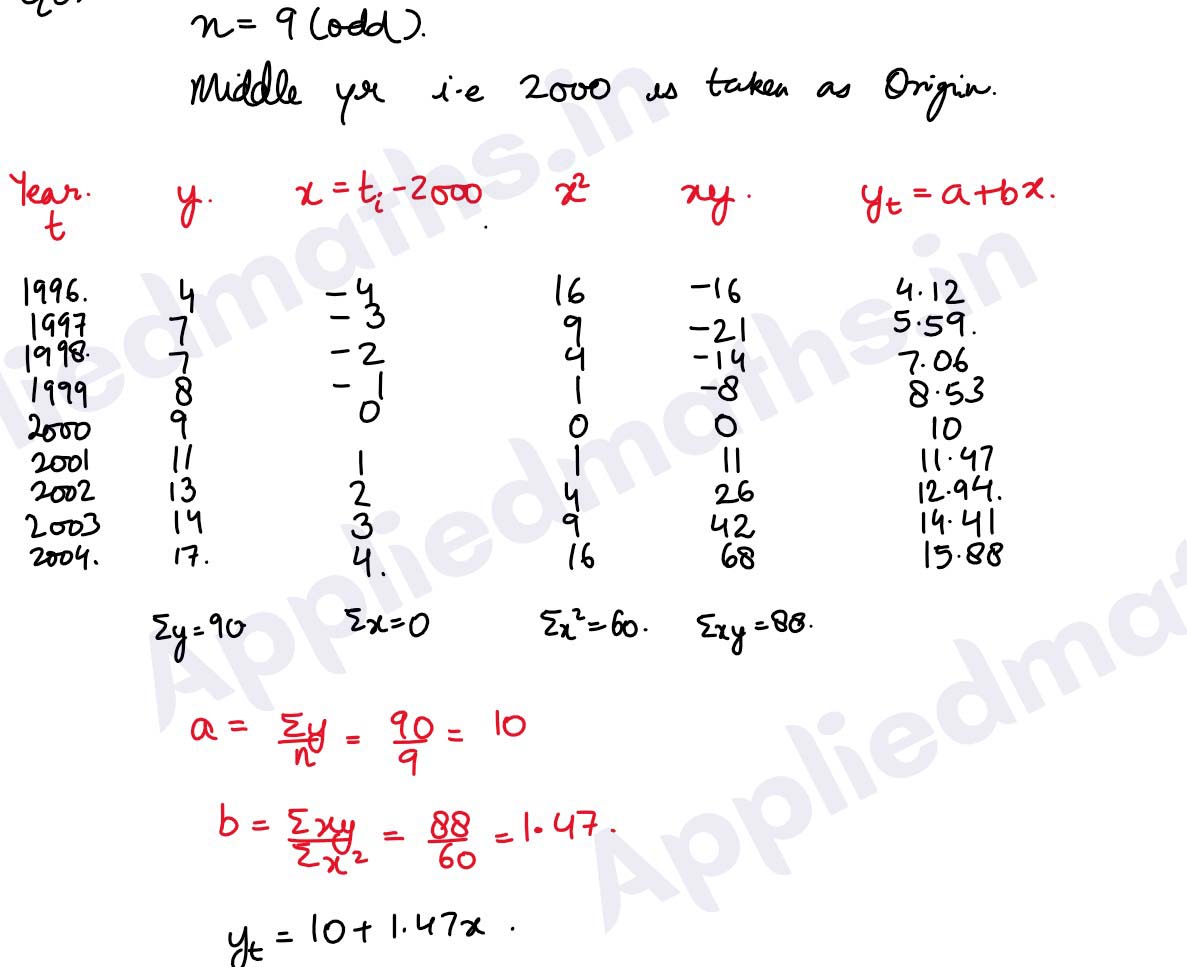 n = 9 (odd).
Middle yr i.e 2000 is taken as Origin.
Year. t y. x = tᵢ - 2000 x² xy. yₜ = a+bx.
1996. 4 -4 16 -16 4.12
1997 7 -3 9 -21 5.59.
1998. 7 -2 4 -14 7.06
1999 8 -1 1 -8 8.53
2000 9 0 0 0 10
2001 11 1 1 11 11.47
2002 13 2 4 26 12.94.
2003 14 3 9 42 14.41
2004. 17. 4. 16 68 15.88
Σy=90 Σx=0 Σx²=60. Σxy=88.
a = Σy/n = 90/9 = 10
b = Σxy/Σx² = 88/60 = 1.47.
yₜ = 10 + 1.47x .
Appliedmaths.in
Appliedmaths.in